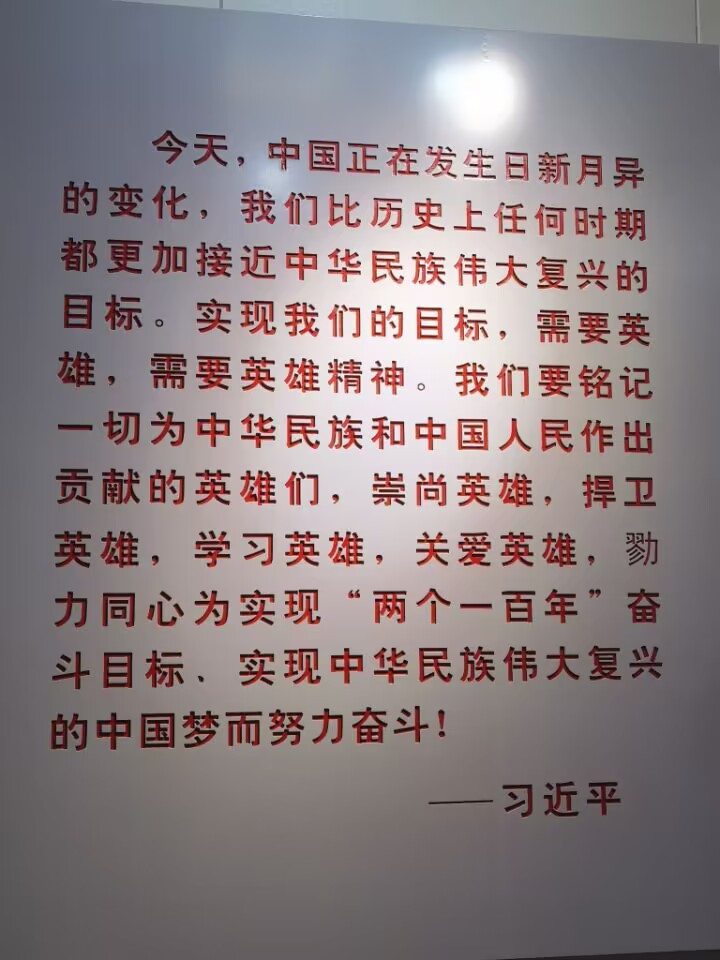 今天，中国正在发生日新月异
的变化，我们比历史上任何时期
都更加接近中华民族伟大复兴的
目标。实现我们的目标，需要英
雄，需要英雄精神。我们要铭记
一切为中华民族和中国人民作出
贡献的英雄们，崇尚英雄，捍卫
英雄，学习英雄，关爱英雄，勠
力同心为实现“两个一百年”奋
斗目标、实现中华民族伟大复兴
的中国梦而努力奋斗！
——习近平